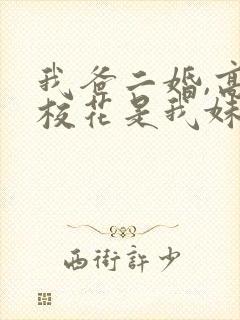 我爸二婚,高
校花是我妹
西街許少